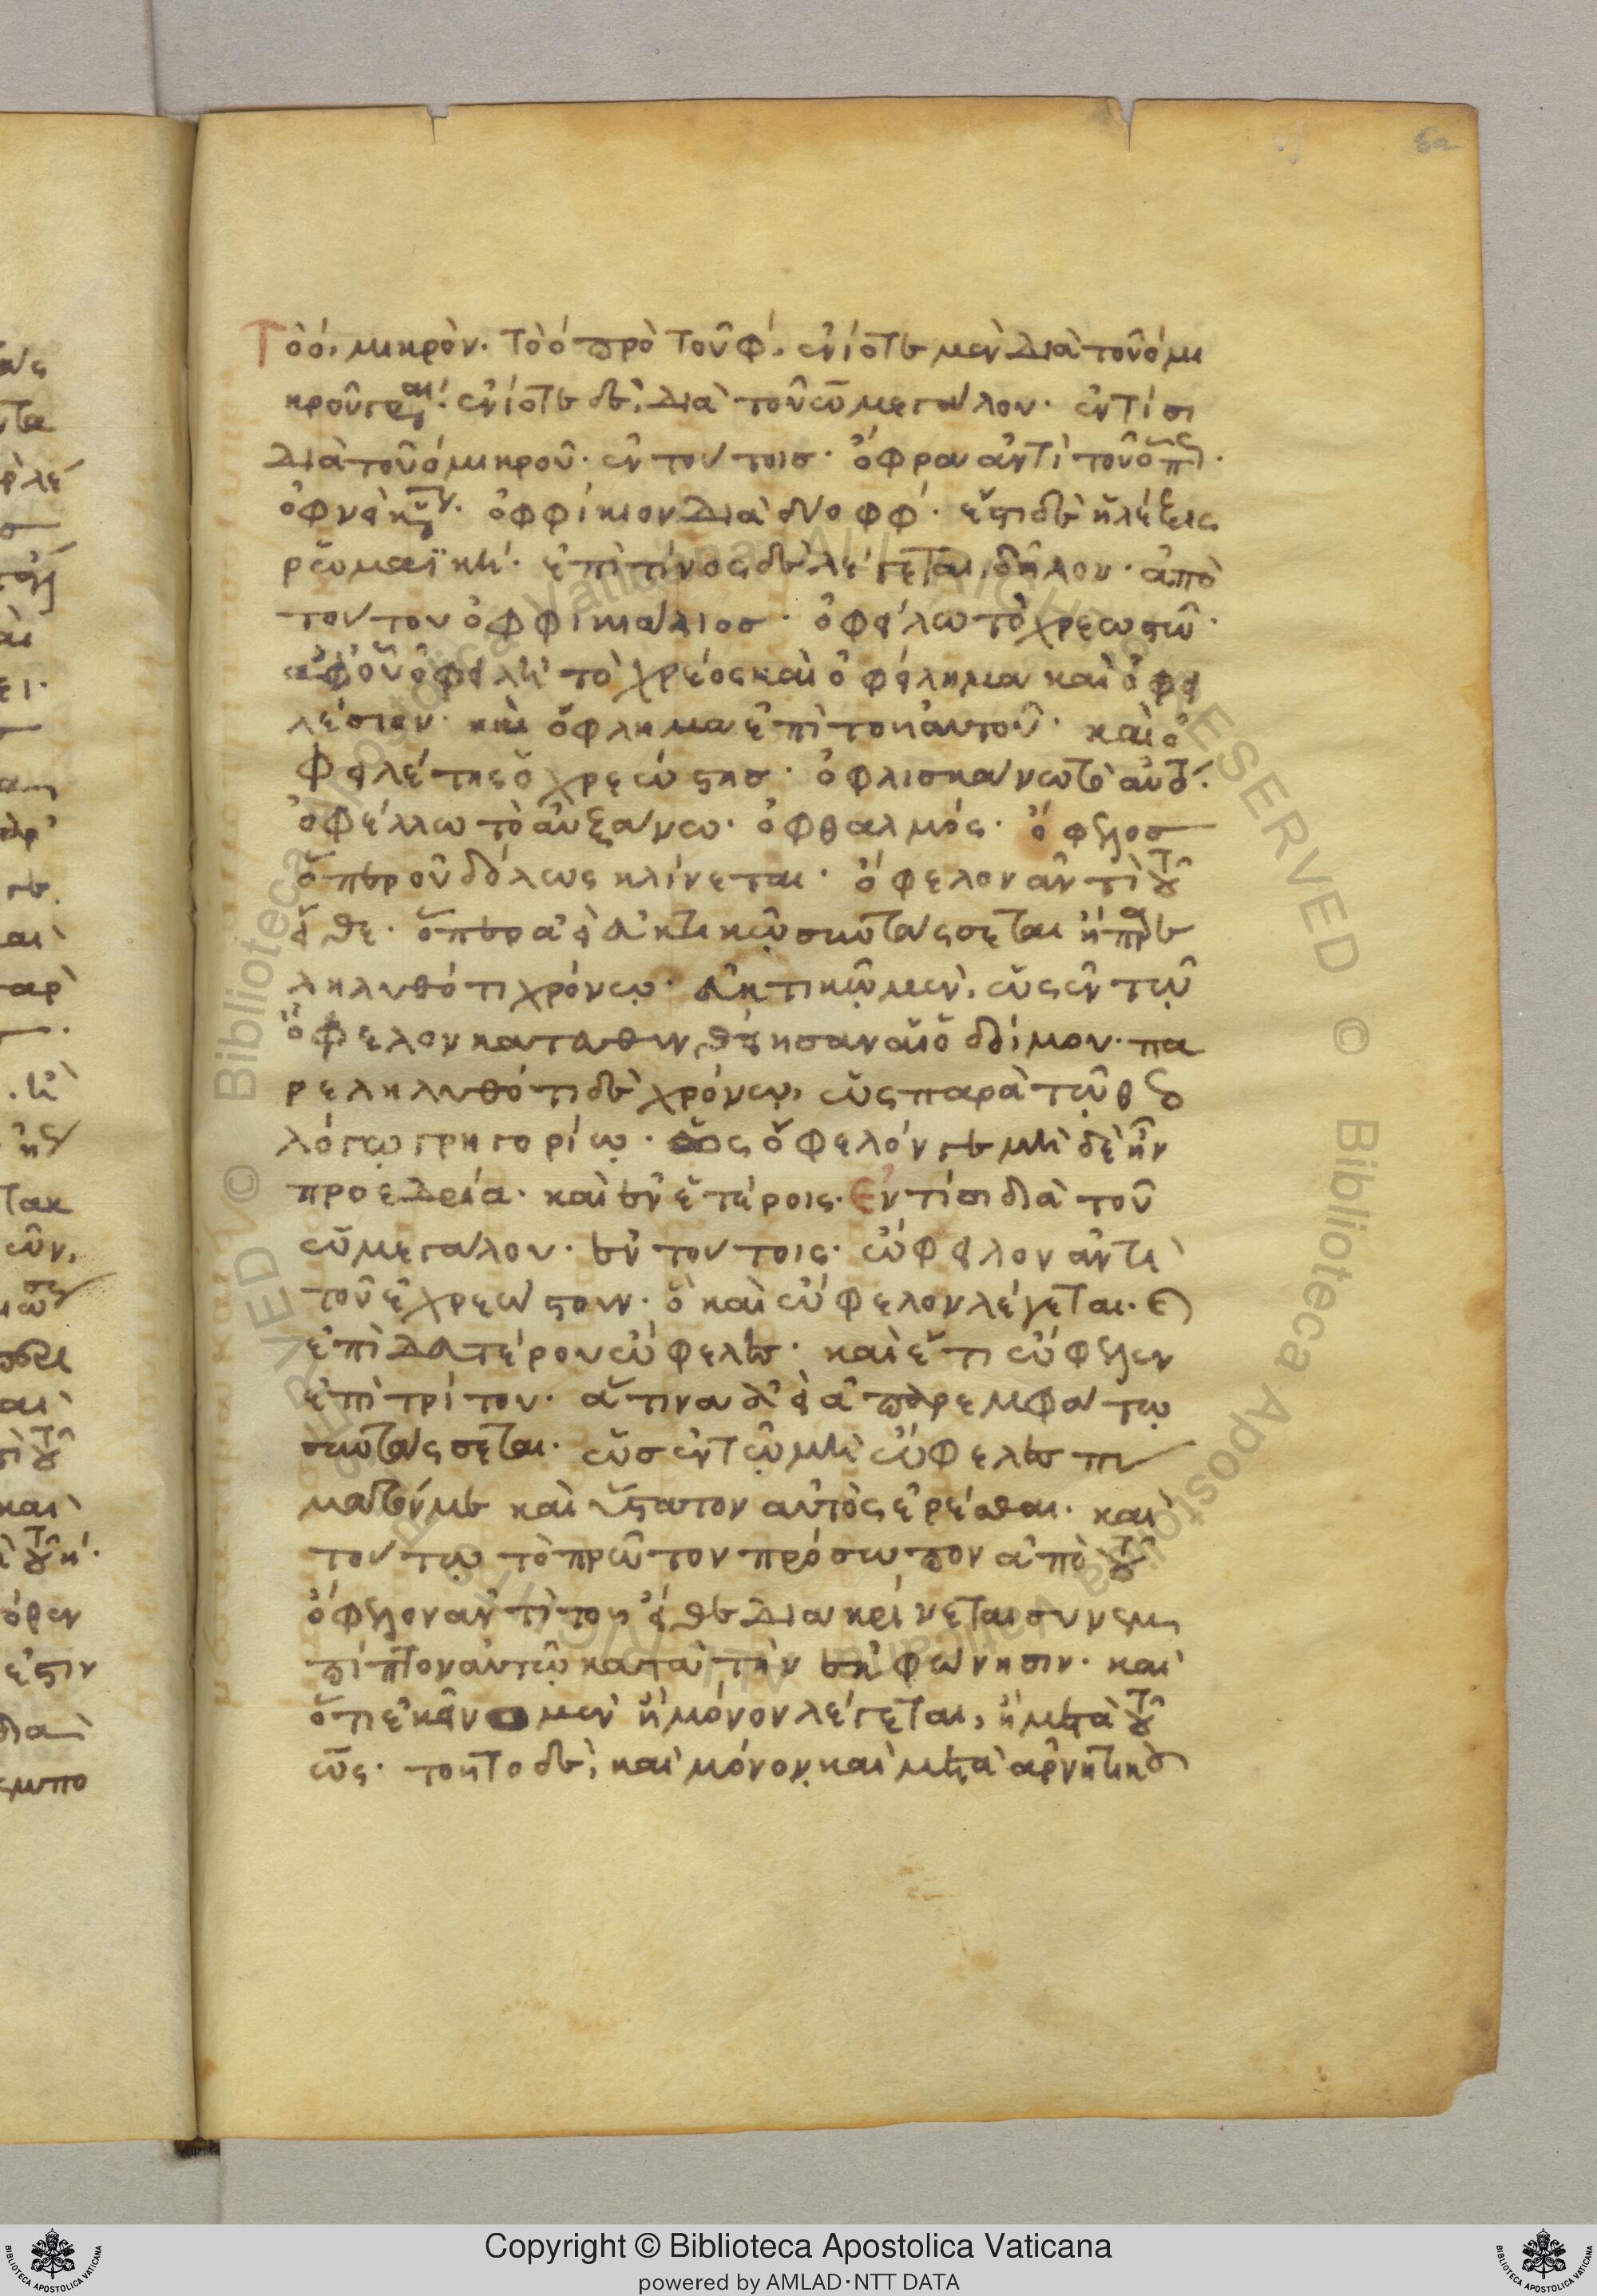 Τὸ ὁ, μικρὸν. Τὸ ὁ πρὸ τοῦ φ, ἐνίοτε μὲν διὰ τοῦ ὁ μι
κροῦ γράφεται· ἐνίοτε δὲ, διὰ τοῦ ὠ μεγάλου. ἐν τίσι
διὰ τοῦ ὁ μικροῦ· ἐν τούτοισ· ὄφρα ἀντὶ τοῦ ὅπως.
ὀφρὺς κτην. ὀφφίκιον διὰ δύο φφ. ἔστι δὲ ἡ λέξις
ῥωμαϊκὴ. ἐπὶ τίνος δὲ λέγεται, δῆλον. ἀπὸ
τούτου ὀφφικιάλιοσ. ὀφείλω τὸ χρεωστῶ.
ἀφοῦ ὀφειλὴ τὸ χρέος καὶ ὀφείλημα καὶ ὀφει
λέσιον. καὶ ὄφλημα ἐπὶ τοῦ αὐτοῦ. καὶ ὀ
φειλέτης ὁ χρεώστησ. ὀφλισκάνω τὸ αὐτό.
ὀφέλλω τὸ αὐξάνω. ὀφθαλμός. ὄφελοσ
ὅπερ οὐδόλως κλίνεται. ὄφελον ἀντὶ τοῦ
εἴθε. ὅπερ ἀεὶ εὐκτικῷ συντάσσεται ἢ παρε
ληλυθότι χρόνῳ. εὐκτικῷ μὲν, ὡς ἐν τῷ
ὄφελον κατευθυνθείησαν αἱ ὁδοί μου. πα
ρεληλυθότι δὲ χρόνῳ, ὡς παρὰ τῷ θεο
λόγῳ γρηγορίῳ. ὡς ὄφελόν γε μὴ δὲ ἦν
προεδρία. καὶ ἐν ἑτέροις. Ἐν τίσι διὰ τοῦ
ὠ μεγάλου. ἐν τούτοις. ὤφειλον ἀντὶ
τοῦ ἐχρεώστουν. ὁ καὶ ὤφελον λέγεται. καὶ
ἐπὶ δευτέρου ὤφελες. καὶ ἔτι ὤφελεν
ἐπὶ τρίτου. ἅτινα δὲ ἀεὶ ἀπαρεμφάτῳ
συντάσσεται. ὡσ ἐν τῷ μὴ ὤφελες πη
ματένμε καὶ ὕστατον αὐτὸς ἐρέσθαι. καὶ
τούτῳ τὸ πρῶτον πρόσωπον ἀπὸ τοῦ
ὄφελον ἀντὶ τοῦ εἴθε διακρίνεται συνεμ
πίπτον αὐτῷ κατὰ τὴν ἐκφώνησιν. καὶ
ὅτι ἐκεῖνο μὲν ἢ μόνον λέγεται, ἢ μετὰ τοῦ
ὡς. τοῦτο δὲ, καὶ μόνον καὶ μετὰ ἀρνητικοῦ
Copyright © Biblioteca Apostolica Vaticana
powered by AMLAD·NTT DATA